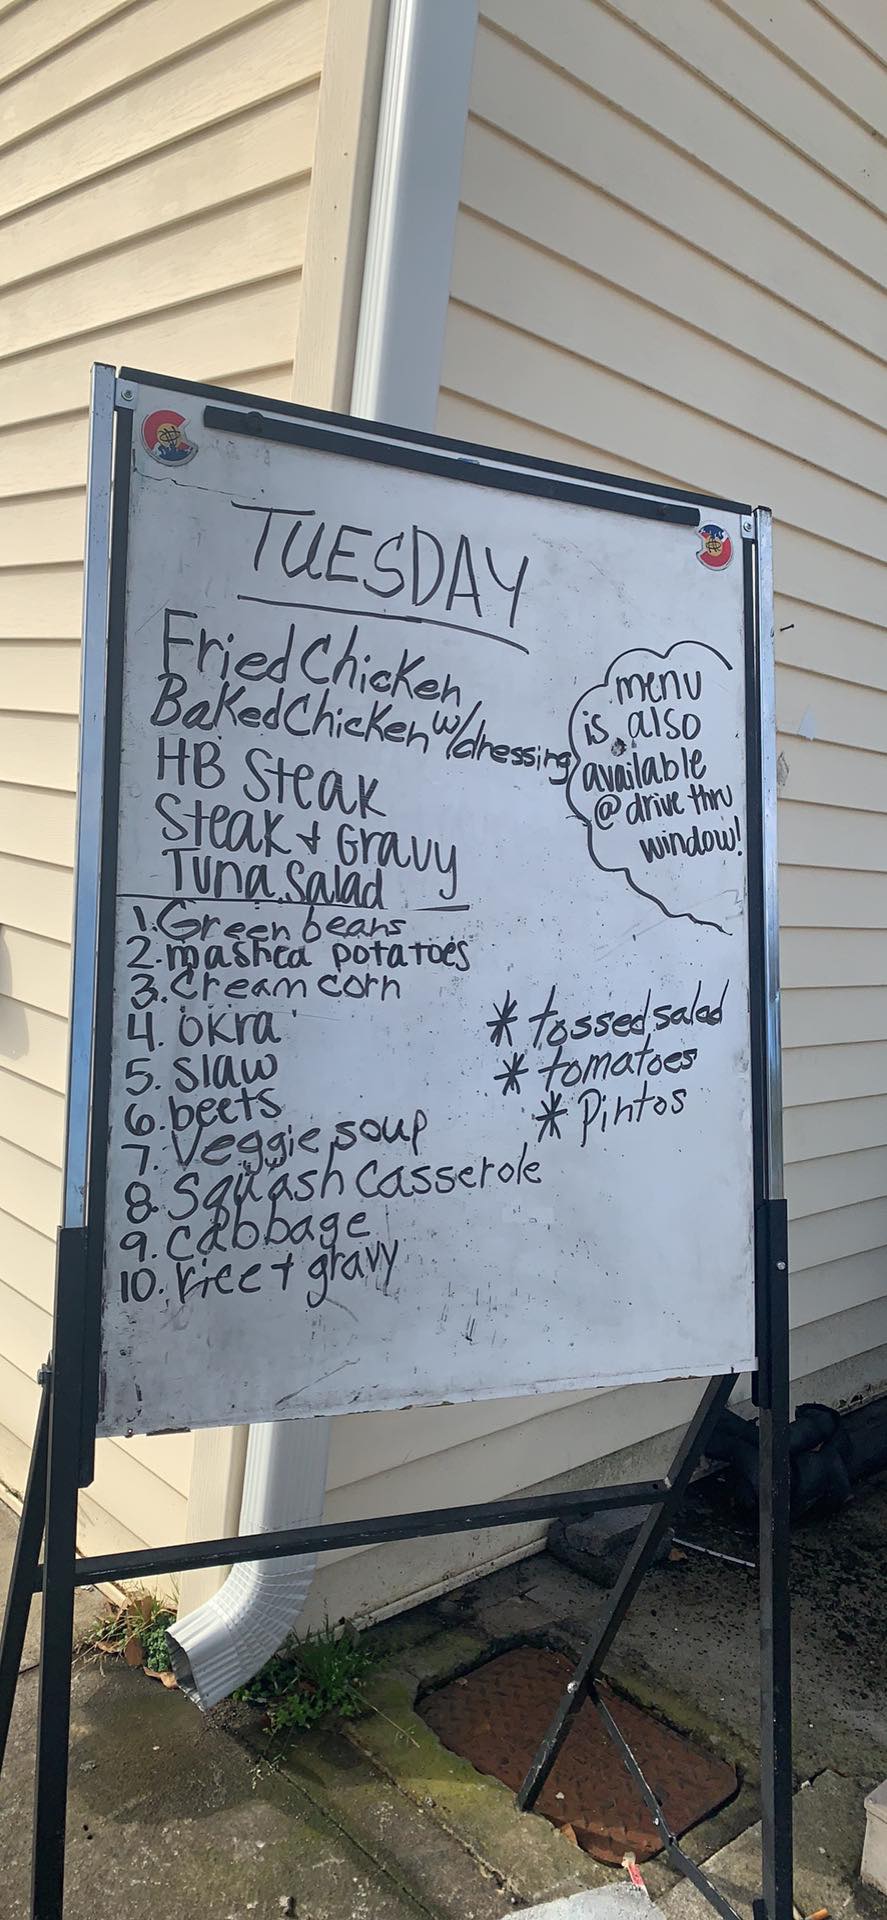 TUESDAY
Fried Chicken
Baked Chicken w/dressing
HB Steak
Steak + Gravy
Tuna Salad
menu
is also
available
@ drive thru
window!
1. Green beans
2. mashed potatoes
3. Cream corn
4. okra
5. slaw
6. beets
7. Veggie soup
8. Squash Casserole
9. Cabbage
10. rice + gravy
* tossed salad
* tomatoes
* Pintos